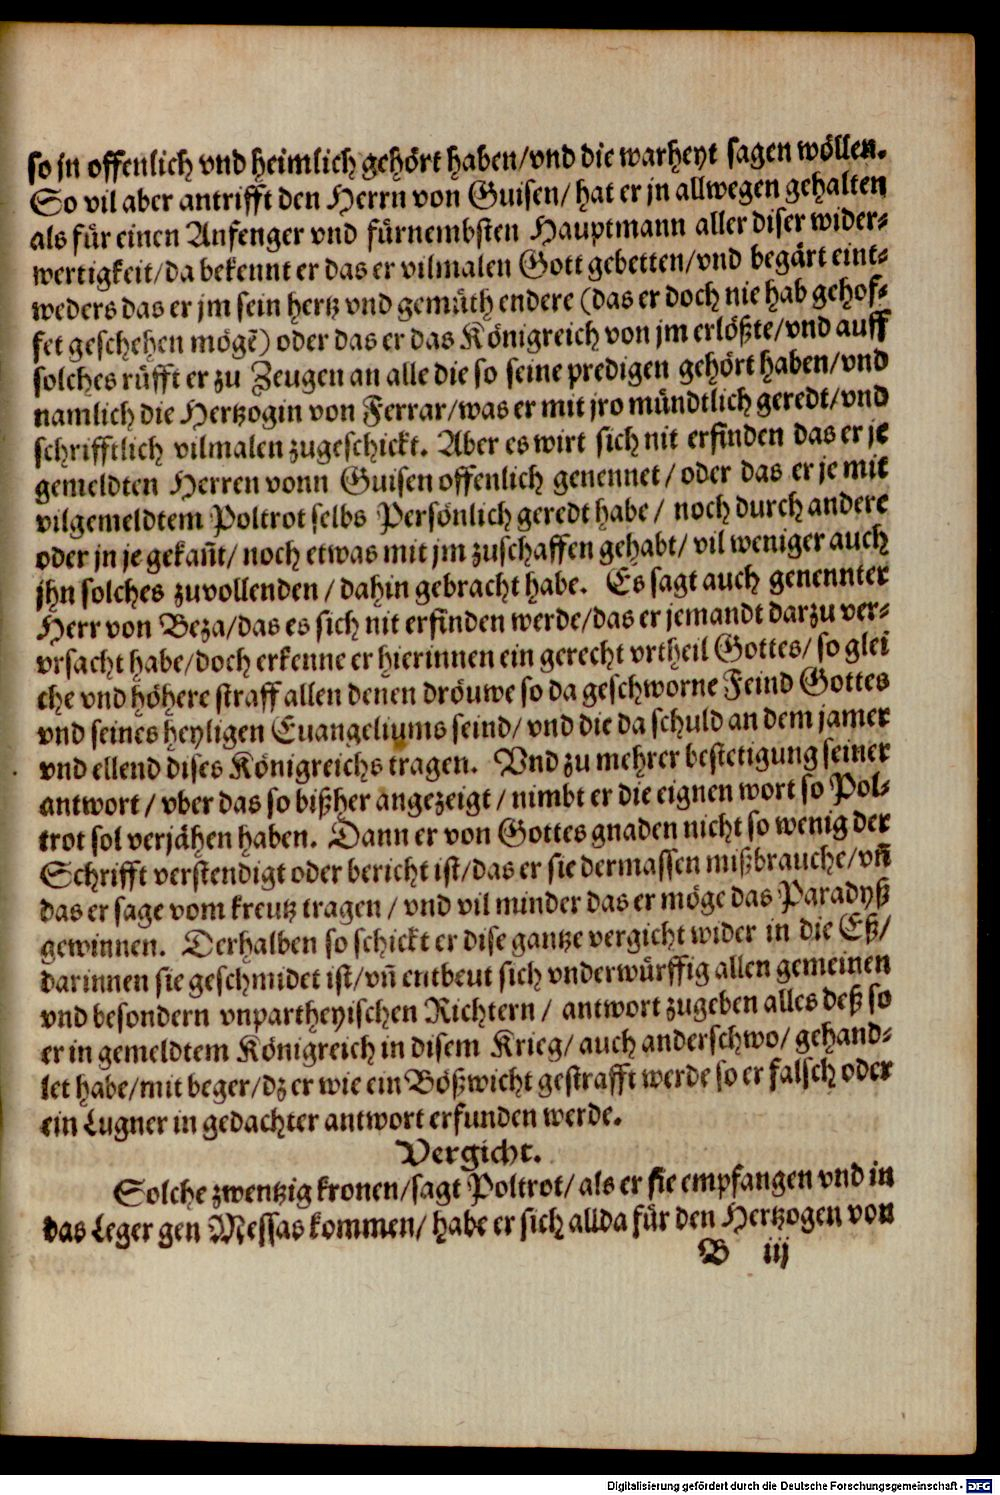 so jn offenlich vnd heimlich gehört haben/vnd die warheyt sagen wöllen.
So vil aber antrifft den Herrn von Guisen/ hat er jn allwegen gehalten
als für einen Anfenger vnd fürnembsten Hauptmann aller diser wider-
wertigkeit/da bekennt er das er vilmalen Gott gebetten/vnd begärt eint-
weders das er jm sein hertz vnd gemüth endere (das er doch nie hab gehof-
fet geschehen mögẽ) oder das er das Königreich von jm erlößte/vnd auff
solches rüfft er zu Zeugen an alle die so seine predigen gehört haben/vnd
namlich die Hertzogin von Ferrar/was er mit jro mündtlich geredt/vnd
schrifftlich vilmalen zugeschickt. Aber es wirt sich nit erfinden das er je
gemeldten Herren vonn Guisen offenlich genennet/ oder das er je mit
vilgemeldtem Poltrot selbs Persönlich geredt habe/ noch durch andere
oder jn je gekañt/ noch etwas mit jm zuschaffen gehabt/ vil weniger auch
jhn solches zuvollenden/ dahin gebracht habe. Es sagt auch genennter
Herr von Beza/das es sich nit erfinden werde/das er jemandt darzu ver-
vrsacht habe/doch erkenne er hierinnen ein gerecht vrtheil Gottes/ so glei
che vnd höhere straff allen denen dröuwe so da geschworne Feind Gottes
vnd seines heyligen Euangeliums seind/ vnd die da schuld an dem jamer
vnd ellend dises Königreichs tragen. Vnd zu mehrer bestetigung seiner
antwort/ vber das so bißher angezeigt/ nimbt er die eignen wort so Pol-
trot sol verjähen haben. Dann er von Gottes gnaden nicht so wenig der
Schrifft verstendigt oder bericht ist/das er sie dermassen mißbrauche/vñ
das er sage vom kreutz tragen/ vnd vil minder das er möge das Paradyß
gewinnen. Derhalben so schickt er dise gantze vergicht wider in die Eß/
darinnen sie geschmidet ist/vñ entbeut sich vnderwürffig allen gemeinen
vnd besondern vnpartheyischen Richtern/ antwort zugeben alles deß so
er in gemeldtem Königreich in disem Krieg/ auch anderschwo/ gehand-
let habe/mit beger/dz er wie ein Bößwicht gestrafft werde so er falsch oder
ein Lugner in gedachter antwort erfunden werde.
Vergicht.
Solche zwentzig kronen/sagt Poltrot/ als er sie empfangen vnd in
das Leger gen Messas kommen/ habe er sich allda für den Hertzogen von
B iij
Digitalisierung gefördert durch die Deutsche Forschungsgemeinschaft - DFG